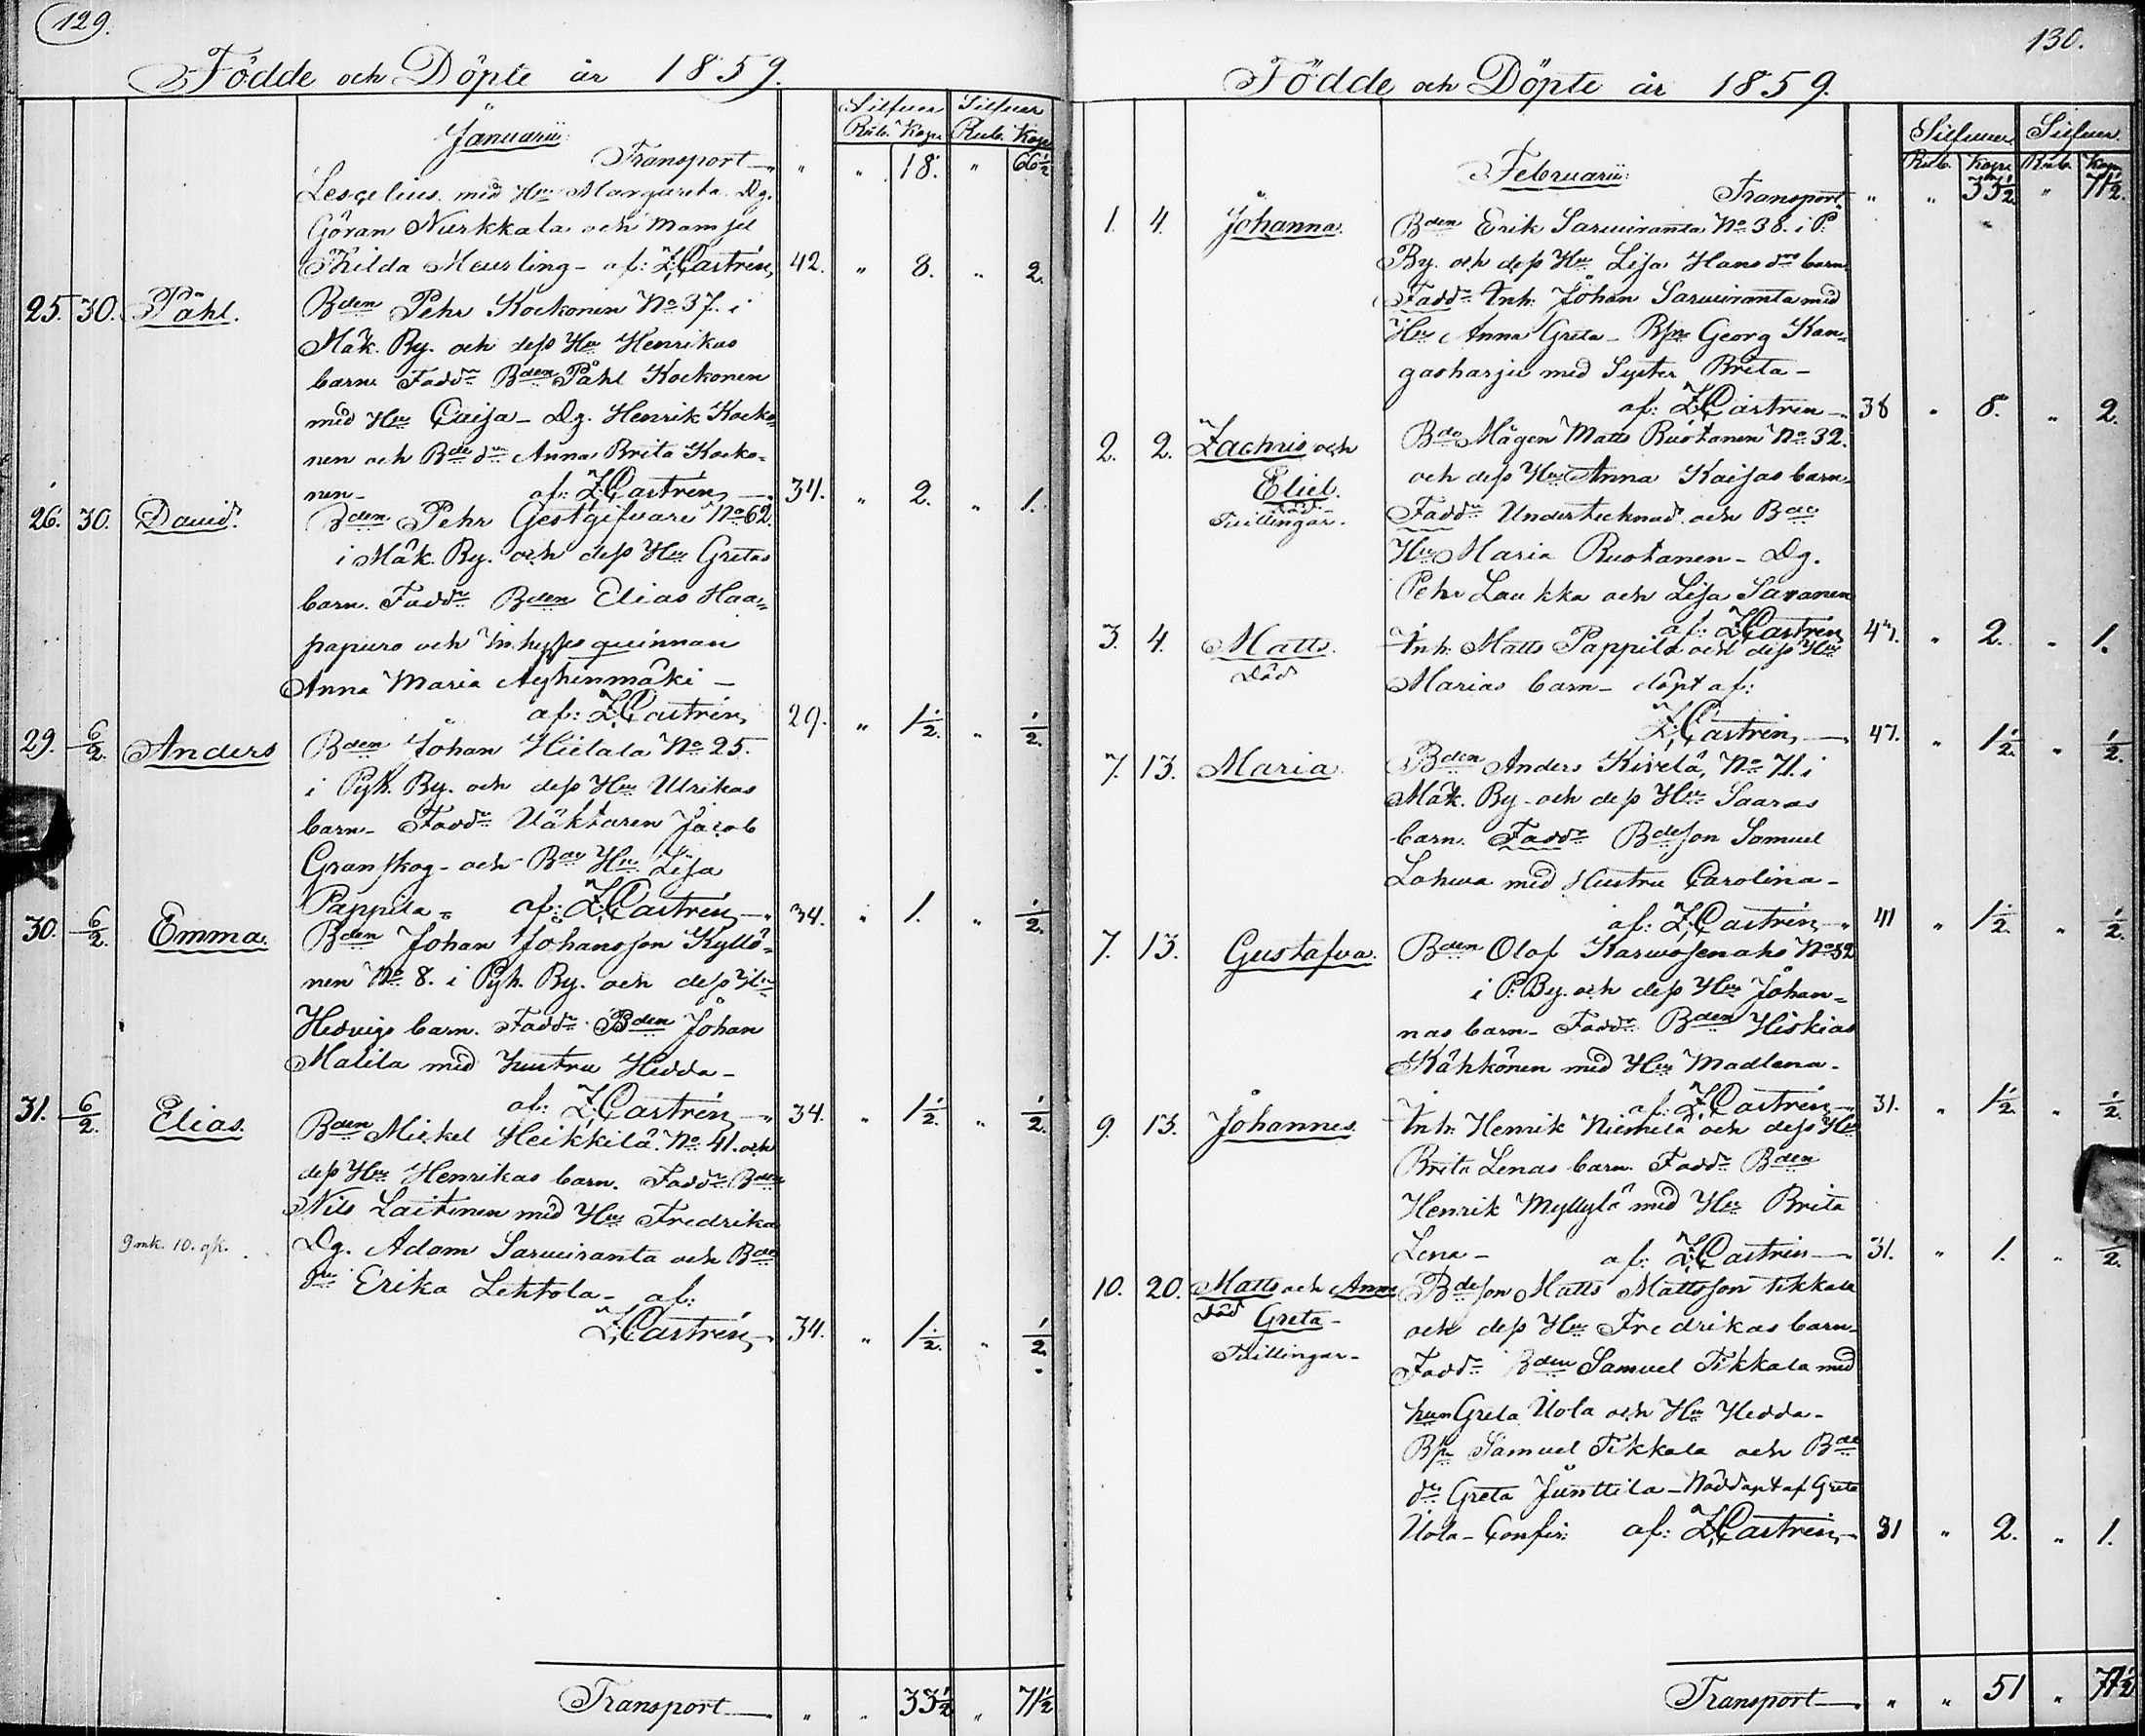 129.
Födde och Döpte år 1859.
Silfver Silfver
Januarii Rub. Kop. Rub. Kop.
Transport " " 18. " 66½
Lescelius med Hu Margareta Dg.
Göran Nurkkala och Mamsel
Thilda Meurling - af: Z. Castrén, 42. " 8. " 2.
25. 30. Påhl. Bden Pehr Kockonen No 37. i
Mäk. By. och dess Hu Henrikas
barn. Faddr Bden Påhl Kockonen
med Hu Caisa - Dg. Henrik Kocko=
nen och Bde dr Anna Brita Kocko=
nen - af: Z. Castrén, 34. " 2. " 1.
26. 30. David. Bden Pehr Gestgifvare No 62.
i Mäk. By. och dess Hu Gretas
barn. Faddr Bden Elias Haa=
papuro och Inhyses quinnan
Anna Maria
af: Z. Castrén, 29. " 1½. " ½.
29. 6/2. Anders Bden Johan Hietala No 25.
i Pyh. By. och dess Hu Ulrikas
barn - Faddr Väktaren Jacob
Granskog - och Bde Hu Lisa
Pappila - af: Z. Castrén, 34. " 1. " ½.
30. 6/2. Emma. Bden Johan Johansson Kyllö=
nen No 8. i Pyh. By. och dess Hu
Hedvigs barn. Faddr Bden Johan
Malila med hustru Hedda -
af: Z. Castrén, 34. " 1½. " ½.
31. 6/2. Elias. Bden Mickel Heikkilä. No 41. och
dess Hu Henrikas barn. Faddr Bden
Nils Laitinen med Hu Fredrika
9 mk. 10. Dg. Adam Sarviranta och Bde
dr Erika Lehtola - af:
Z. Castrén, 34. " 1½. " ½.
Transport " " 33½ " 71½
130.
Födde och Döpte år 1859.
Silfver Silfver
Februarii Rub. Kop. Rub. Kop.
Transport " " 33½ " 71½.
1. 4. Johanna. Bden Erik Sarviranta No 38. i P.
By. och dess Hu Lisa Hans drs barn.
Faddr Inh. Johan Sarviranta med
Hu Anna Greta - Bsn Georg Kan=
gasharju med Syster Brita -
af: Z. Castrén 38 " 8. " 2.
2. 2. Zachris och Bde Mågen Matts Ruotanen No 32.
Eliel. och dess Hu Anna Kaisas barn.
död Faddr Undertecknad och Bde
Tvillingar. Hu Maria Ruotanen - Dg.
Pehr Laukka och Lisa Savanen
af: Z. Castrén " 2. " 1.
3. 4. Matts. Inh. Matts Pappila och dess Hu
Död Marias barn - döpt af:
Z. Castrén, 47. " 1½. " ½.
7. 13. Maria. Bden Anders Kivelä, No 71. i
Mäk. By - och dess Hu Saaras
barn. Faddr Bdeson Samuel
Lohva med Hustru Carolina -
af: Z. Castrén 41 " 1½. " ½.
7. 13. Gustafva. Bden Olof Karvosenaho No 32
i P. By. och dess Hu Johan=
nas barn - Faddr Bden Hiskias
Kähkönen med Hu Madlena -
af: Z. Castrén 31. " 1½. " ½.
9. 13. Johannes. Inh. Henrik Niemelä och dess Hu
Brita Lenas barn. Faddr Bden
Henrik Myllylä med Hu Brita
Lena - af: Z. Castrén 31. " 1. " ½.
10. 20. Matts och Anna Bdeson Matts Mattsson Tikkala
Död Greta - och dess Hu Fredrikas barn -
Tvillingar - Faddr Bden Samuel Tikkala med
Greta Uola och Hu Hedda -
Bsn Samuel Tikkala och Bde
dr Greta Junttila - Nöddöpt af Greta
Uola - Confir: af: Z. Castrén, 31 " 2. " 1.
Transport " " 51 " 77½